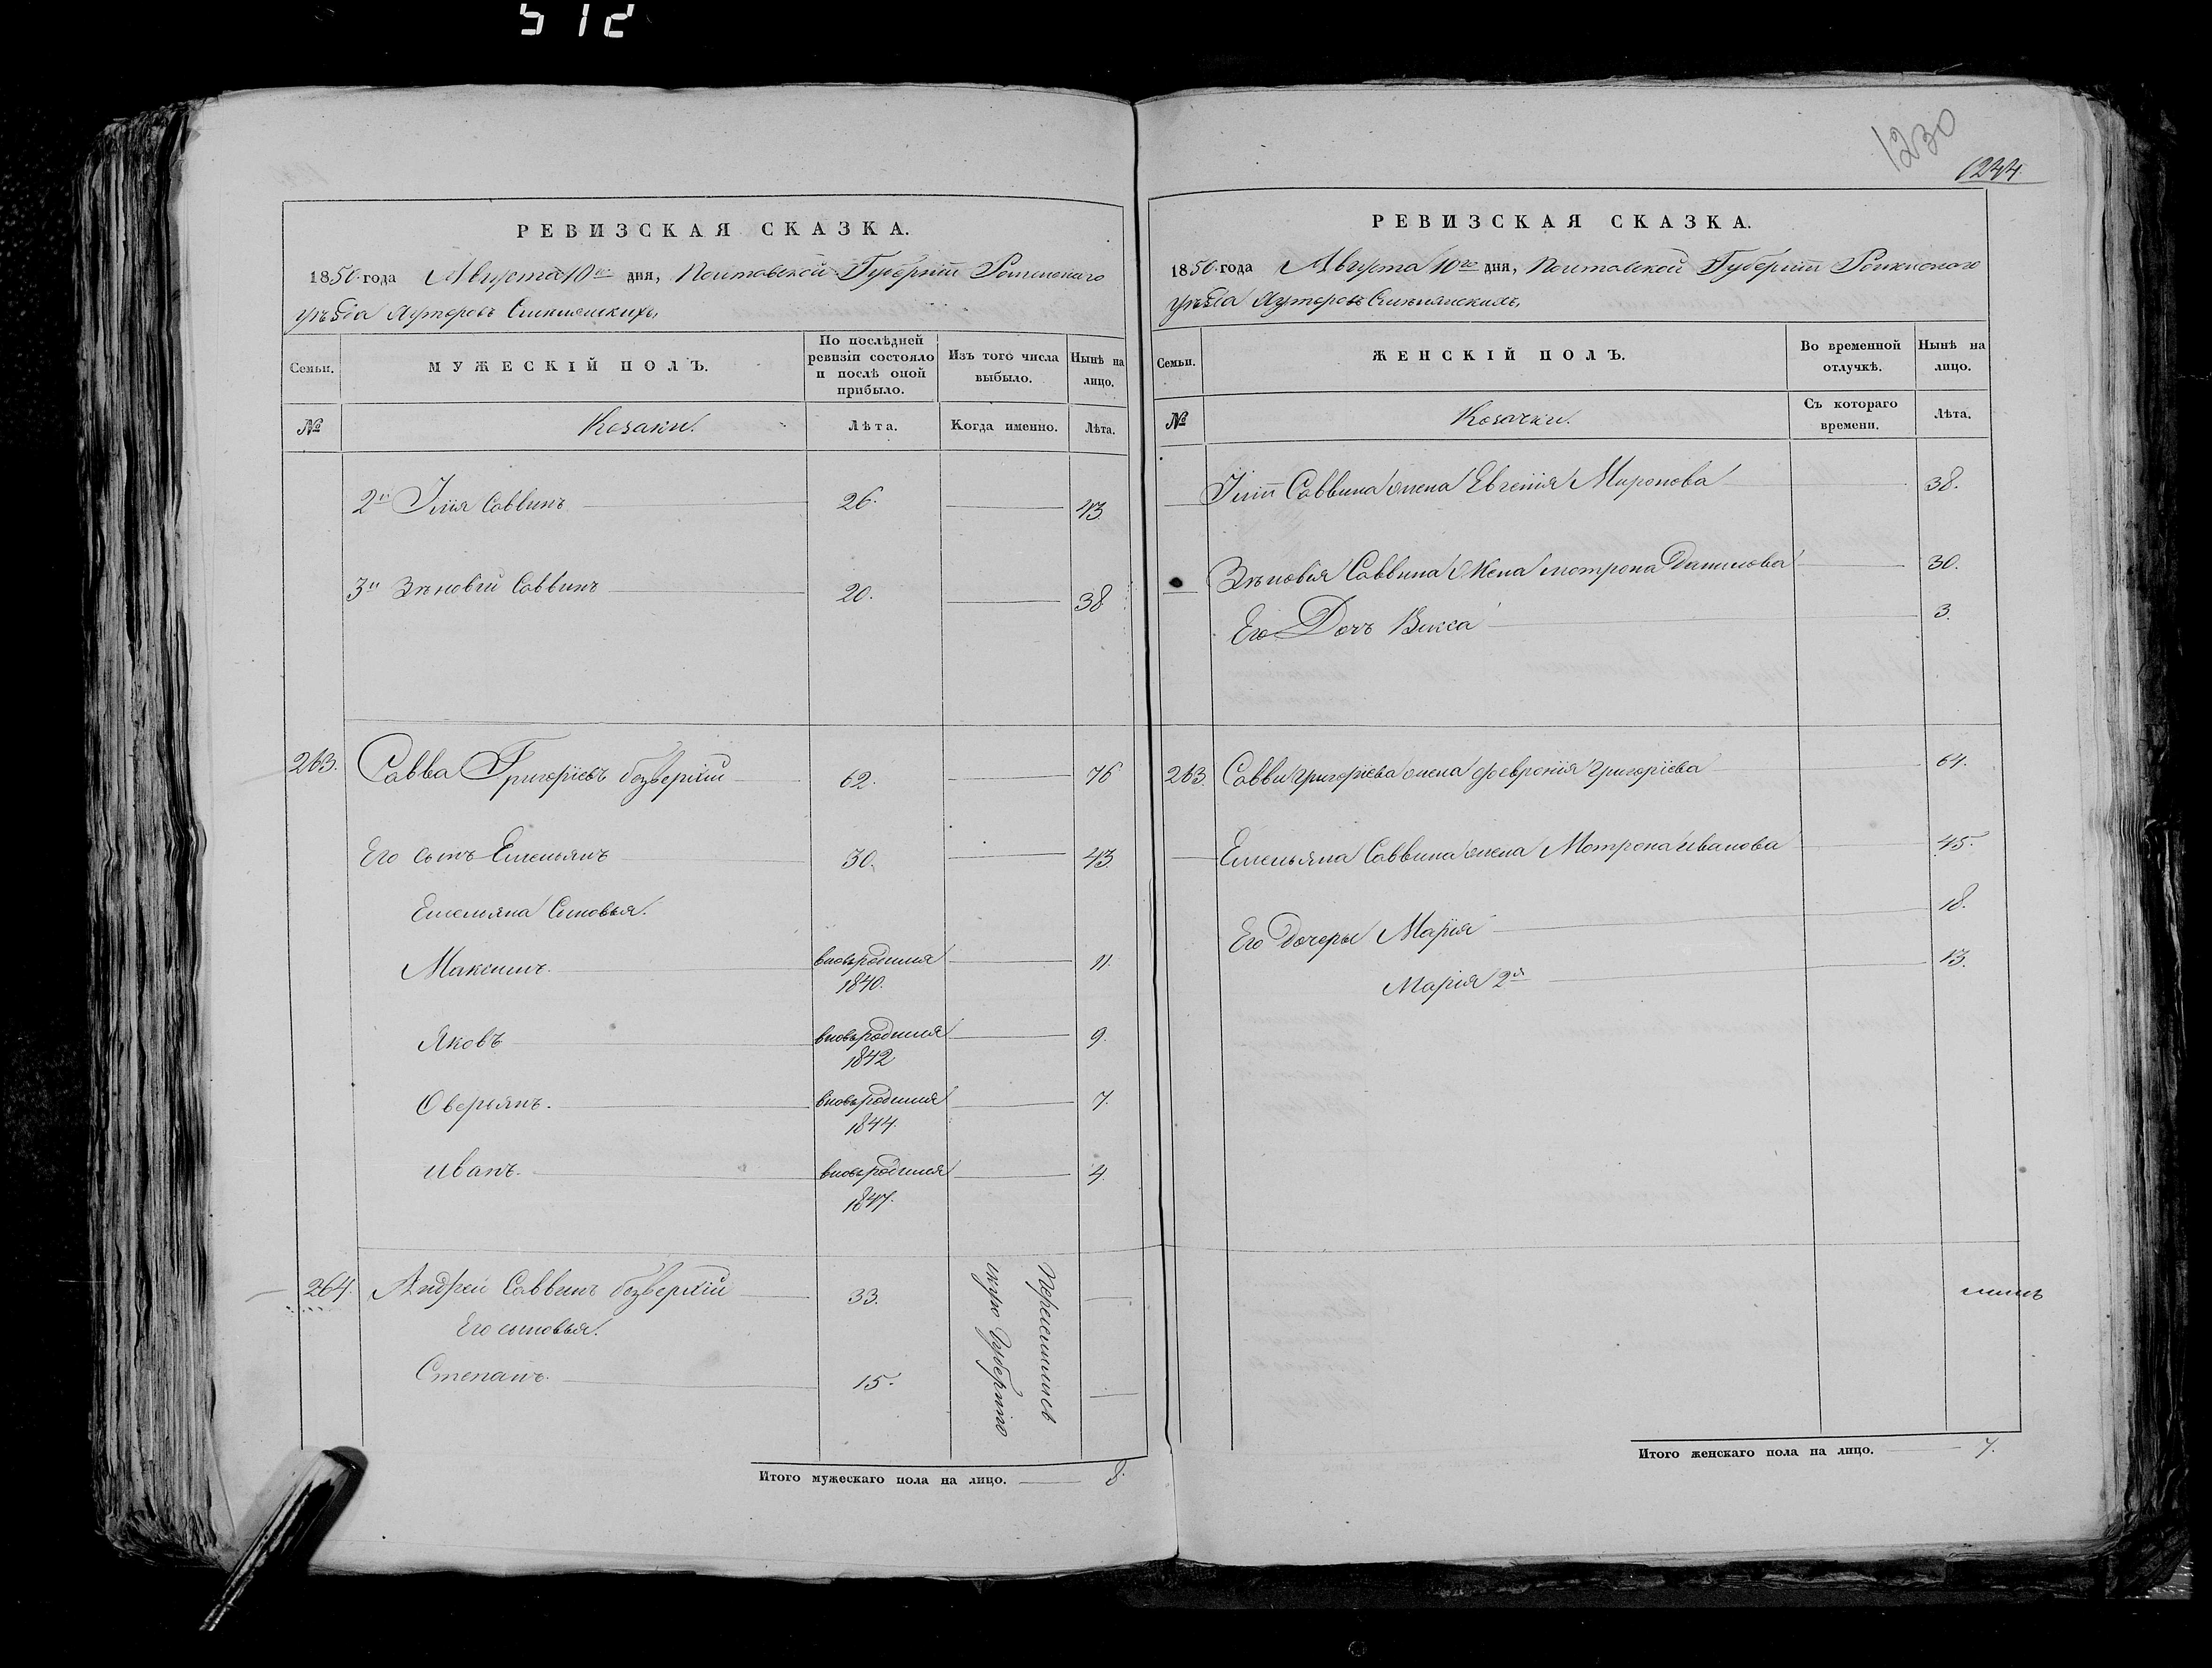 512
РЕВИЗСКАЯ СКАЗКА.
1850 года Августа 10го дня, Полтавской Губерніи Роменскаго
уѣзда Хуторовъ
Семьи.
МУЖЕСКІЙ ПОЛЪ.
По послѣдней ревизіи состояло и послѣ оной прибыло.
Изъ того числа выбыло.
Нынѣ на лицо.
№
Козаки.
Лѣта.
Когда именно.
Лѣта.
2й Илія Саввинъ 26. 43
3й Зѣновій Саввинъ 20. 38
263. Савва Григоріевъ безверхій 62. 76
Его сынъ Емельянъ 30. 43
Емельяна Сыновья.
Максимъ. вновьродился 1840. 11.
Яковъ вновьродился 1842 9.
Оверьянъ. вновьродился 1844. 7.
иванъ. вновьродился 1847. 4.
264. Андрей Саввинъ безверхій 33.
Его сыновья.
Степанъ. 15.
Переселились
Губернію
Итого мужескаго пола на лицо. 8.
1230
1244.
РЕВИЗСКАЯ СКАЗКА.
1850 года Августа 10го дня, Полтавской Губерніи Роменскаго
уѣзда Хуторовъ
Семьи.
ЖЕНСКІЙ ПОЛЪ.
Во временной отлучкѣ.
Нынѣ на лицо.
№
Козачки.
Съ котораго времени.
Лѣта.
Иліи Саввина жена Евгенія Миронова 38.
Зѣновія Саввина Жена мотрона Данилова 30.
Его Дочь Васса 3.
263 Саввы григоріева жена февронія григоріева 64.
Емельяна Саввина жена Мотрона иванова 45.
Его дочеры Марія 18.
Марія 2я 13.
Итого женскаго пола на лицо. 7.